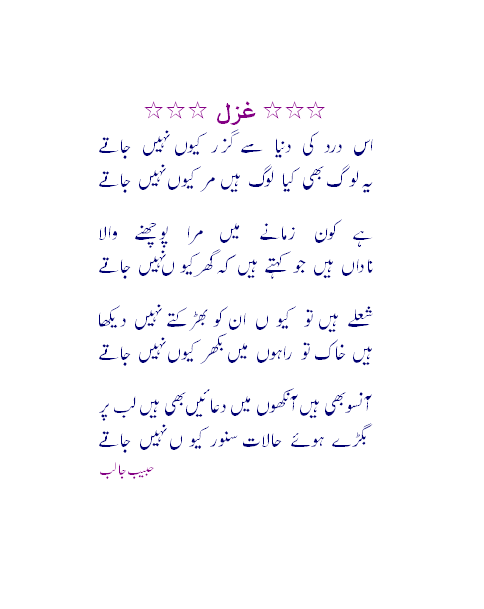 ☆☆☆ غزل ☆☆☆
اس درد کی دنیا سے گزر کیوں نہیں جاتے
یہ لوگ بھی کیا لوگ ہیں مر کیوں نہیں جاتے
ہے کون زمانے میں مرا پوچھنے والا
ناداں ہیں جو کہتے ہیں کہ گھر کیوں نہیں جاتے
شعلے ہیں تو کیوں ان کو بھڑکتے نہیں دیکھا
ہیں خاک تو راہوں میں بکھر کیوں نہیں جاتے
آنسو بھی ہیں آنکھوں میں دعائیں بھی ہیں لب پر
بگڑے ہوئے حالات سنور کیوں نہیں جاتے
حبیب جالب